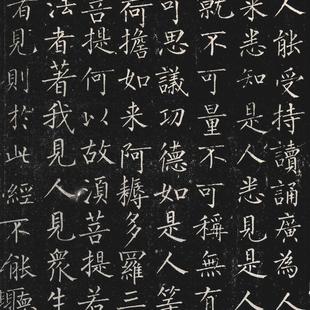 人能受持讀誦廣為人
来悉知是人悉見是人
就不可量不可稱無有
可思議功德如是人等
荷擔如来阿耨多羅三
菩提何以故湏菩提若
法者著我見人見衆生
者見則於此經不能聽